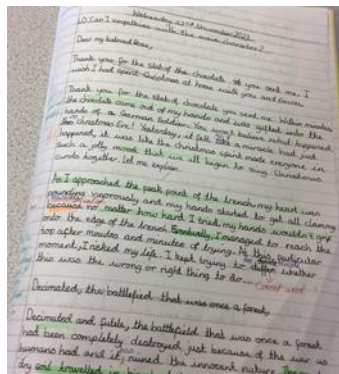 Wednesday 22nd November 2023
LO: Can I empathise with the main character?
Dear my beloved Rose,
Thank you for the slab of the chocolate you sent me. I
wish I had spent Christmas at home with you and
Thank you for the slab of chocolate you sent me. Within minutes
the chocolate came out of my hands and was gifted into the
hands of a German Soldier. You won't believe what happened
on Christmas Eve! Yesterday, it felt like a miracle had just
happened, it was like the Christmas spirit made everyone in
such a jolly mood that we all began to sing Christmas
carols together. Let me explain.
As I approached the peak point of the trench, my heart was
pounding vigorously and my hands started to get all clammy
because no matter how hard I tried my hands wouldn't grip
onto the edge of the trench. Eventually, I managed to reach the
top after minutes and minutes of trying. At this particular
moment, I risked my life. I kept trying to whether
this was the wrong or right thing to do...
Decimated, the battlefield that was once a forest,
Decimated and futile, the battlefield that was once a forest
had been completely destroyed just because of the war us
humans had and it ruined the innocent nature.
dry and